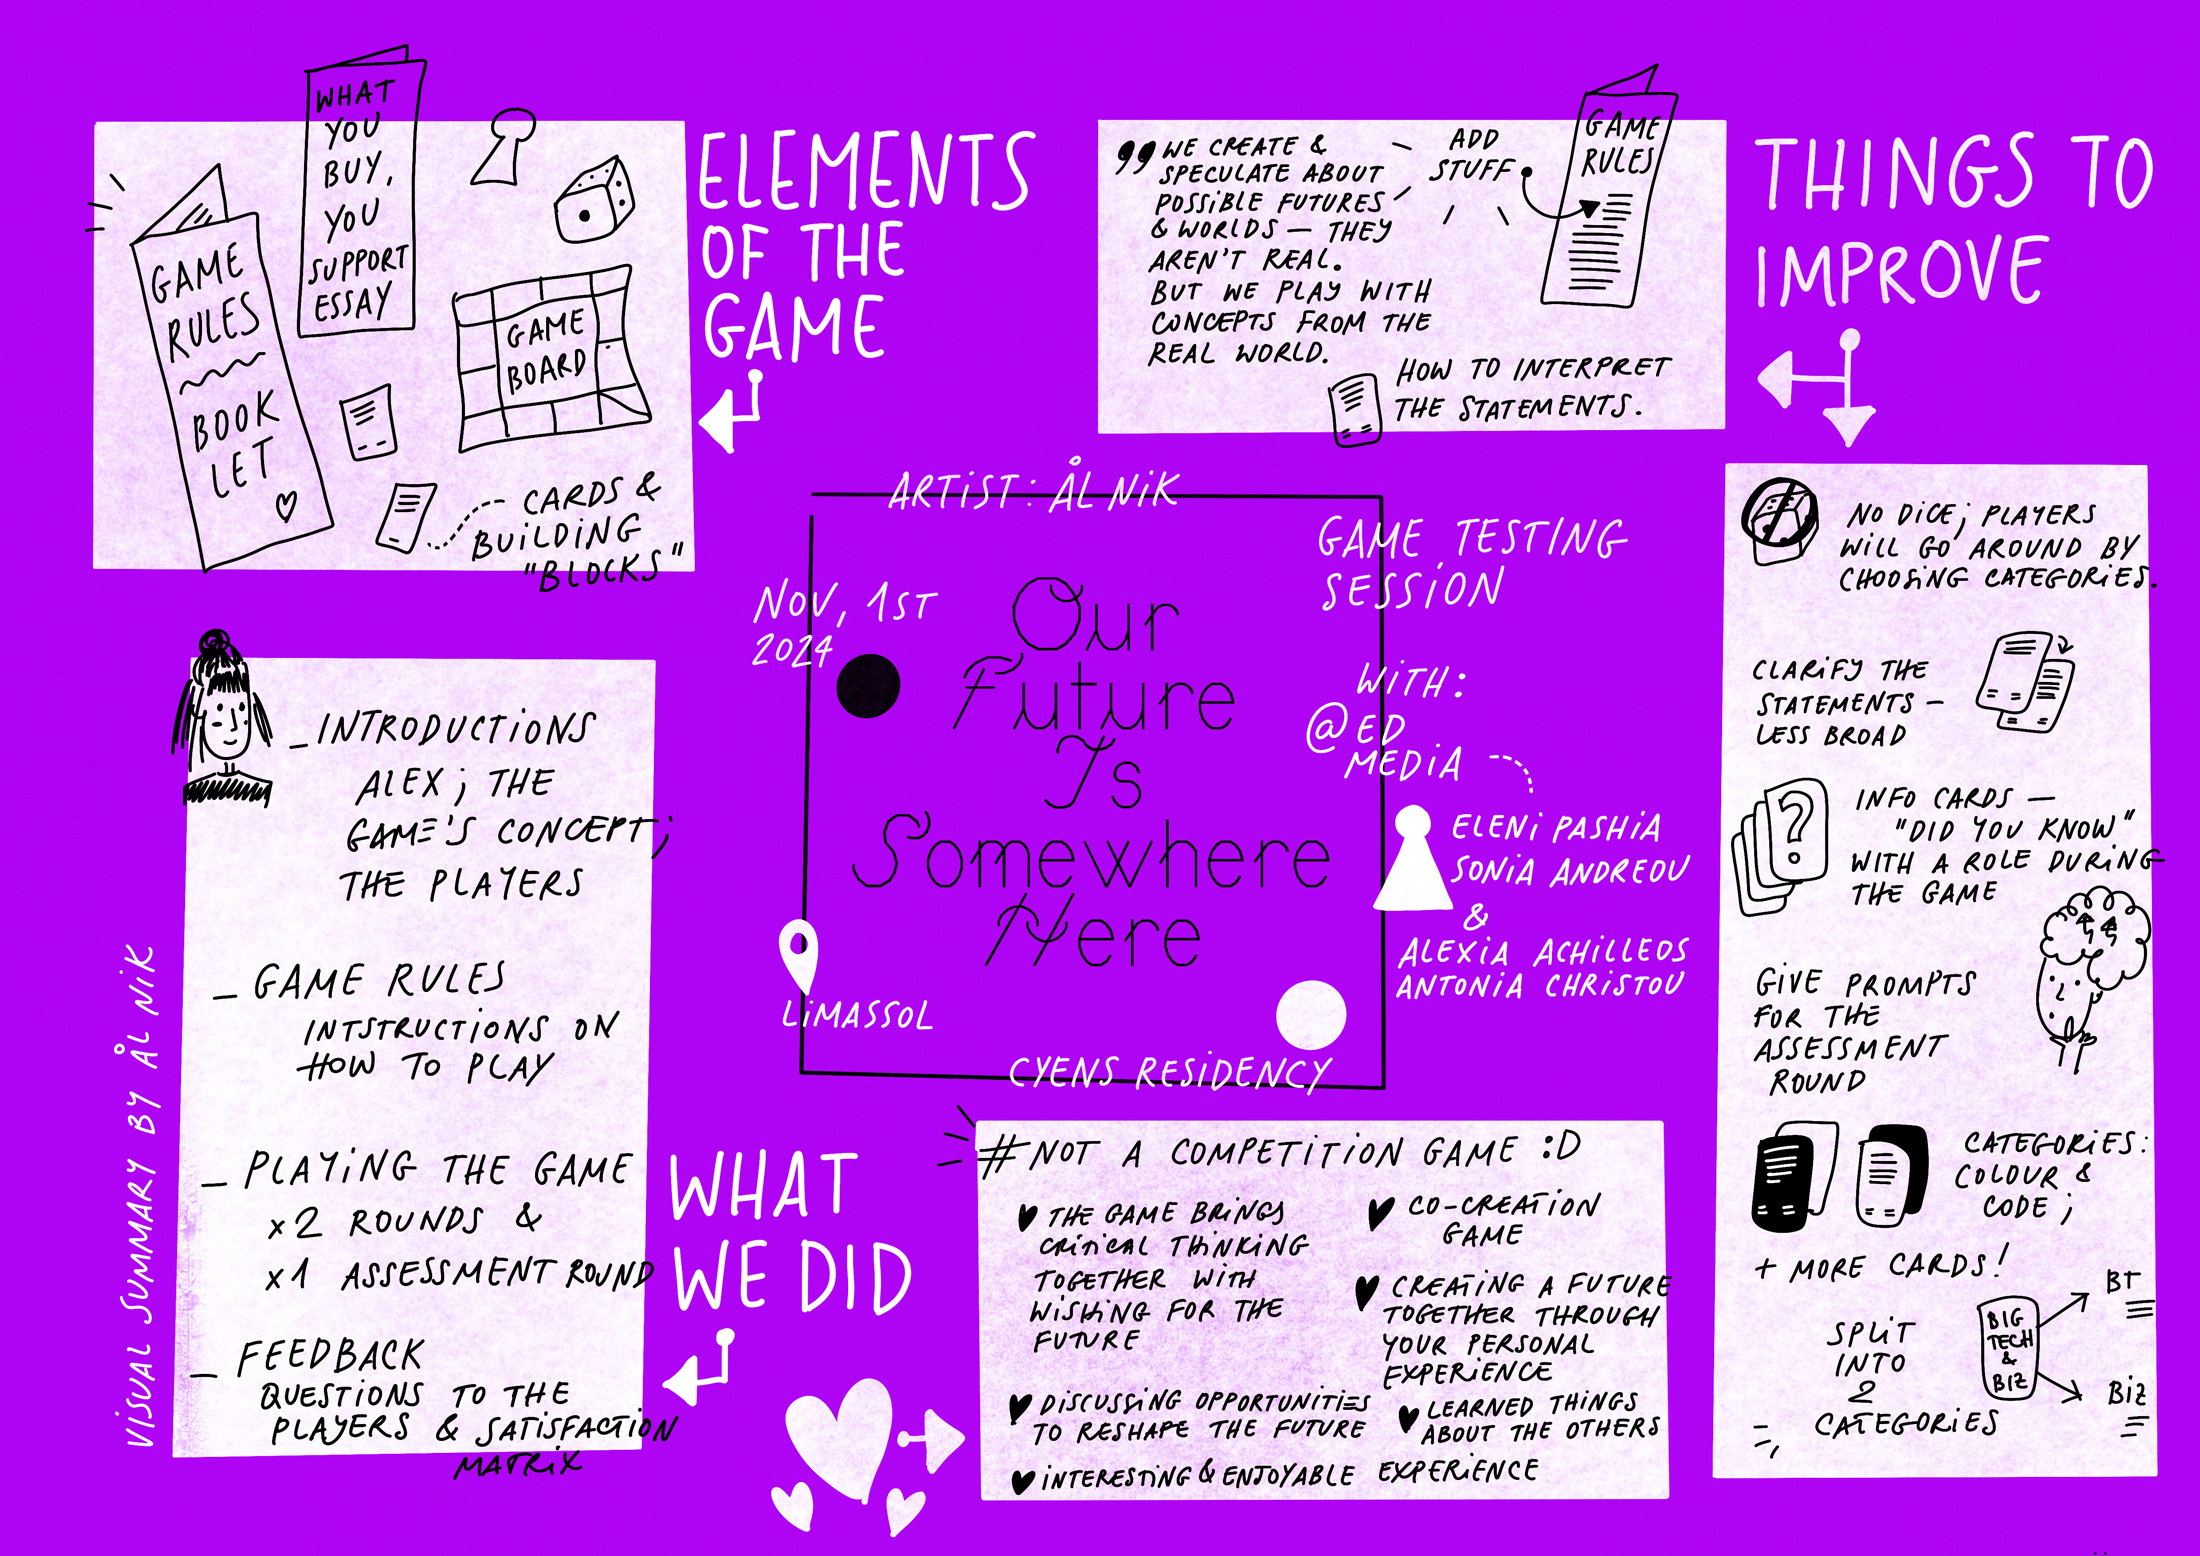 WHAT
YOU
BUY,
YOU
SUPPORT
ESSAY
GAME
RULES
BOOK
LET
GAME
BOARD
CARDS &
BUILDING
"BLOCKS"
ELEMENTS
OF THE
GAME
WE CREATE &
SPECULATE ABOUT
POSSIBLE FUTURES
& WORLDS — THEY
AREN'T REAL.
BUT WE PLAY WITH
CONCEPTS FROM THE
REAL WORLD.
ADD
STUFF
GAME
RULES
HOW TO INTERPRET
THE STATEMENTS.
THINGS TO
IMPROVE
ARTIST: ÅL NIK
NOV, 1ST
2024
GAME TESTING
SESSION
Our
Future
Is
Somewhere
Here
WITH:
@ED
MEDIA
ELENI PASHIA
SONIA ANDREOU
&
ALEXIA ACHILLEOS
ANTONIA CHRISTOU
LIMASSOL
CYENS RESIDENCY
NO DICE; PLAYERS
WILL GO AROUND BY
CHOOSING CATEGORIES.
CLARIFY THE
STATEMENTS —
LESS BROAD
?
INFO CARDS —
"DID YOU KNOW"
WITH A ROLE DURING
THE GAME
GIVE PROMPTS
FOR THE
ASSESSMENT
ROUND
CATEGORIES:
COLOUR &
CODE;
+ MORE CARDS!
SPLIT
INTO
2
CATEGORIES
BIG
TECH
&
BIZ
BT
BIZ
_ INTRODUCTIONS
ALEX; THE
GAME'S CONCEPT;
THE PLAYERS
_ GAME RULES
INTSTRUCTIONS ON
HOW TO PLAY
_ PLAYING THE GAME
x2 ROUNDS &
x1 ASSESSMENT ROUND
_ FEEDBACK
QUESTIONS TO THE
PLAYERS & SATISFACTION
MATRIX
VISUAL SUMMARY BY ÅL NIK
WHAT
WE DID
#NOT A COMPETITION GAME :D
THE GAME BRINGS
CRITICAL THINKING
TOGETHER WITH
WISHING FOR THE
FUTURE
DISCUSSING OPPORTUNITIES
TO RESHAPE THE FUTURE
INTERESTING & ENJOYABLE EXPERIENCE
CO-CREATION
GAME
CREATING A FUTURE
TOGETHER THROUGH
YOUR PERSONAL
EXPERIENCE
LEARNED THINGS
ABOUT THE OTHERS